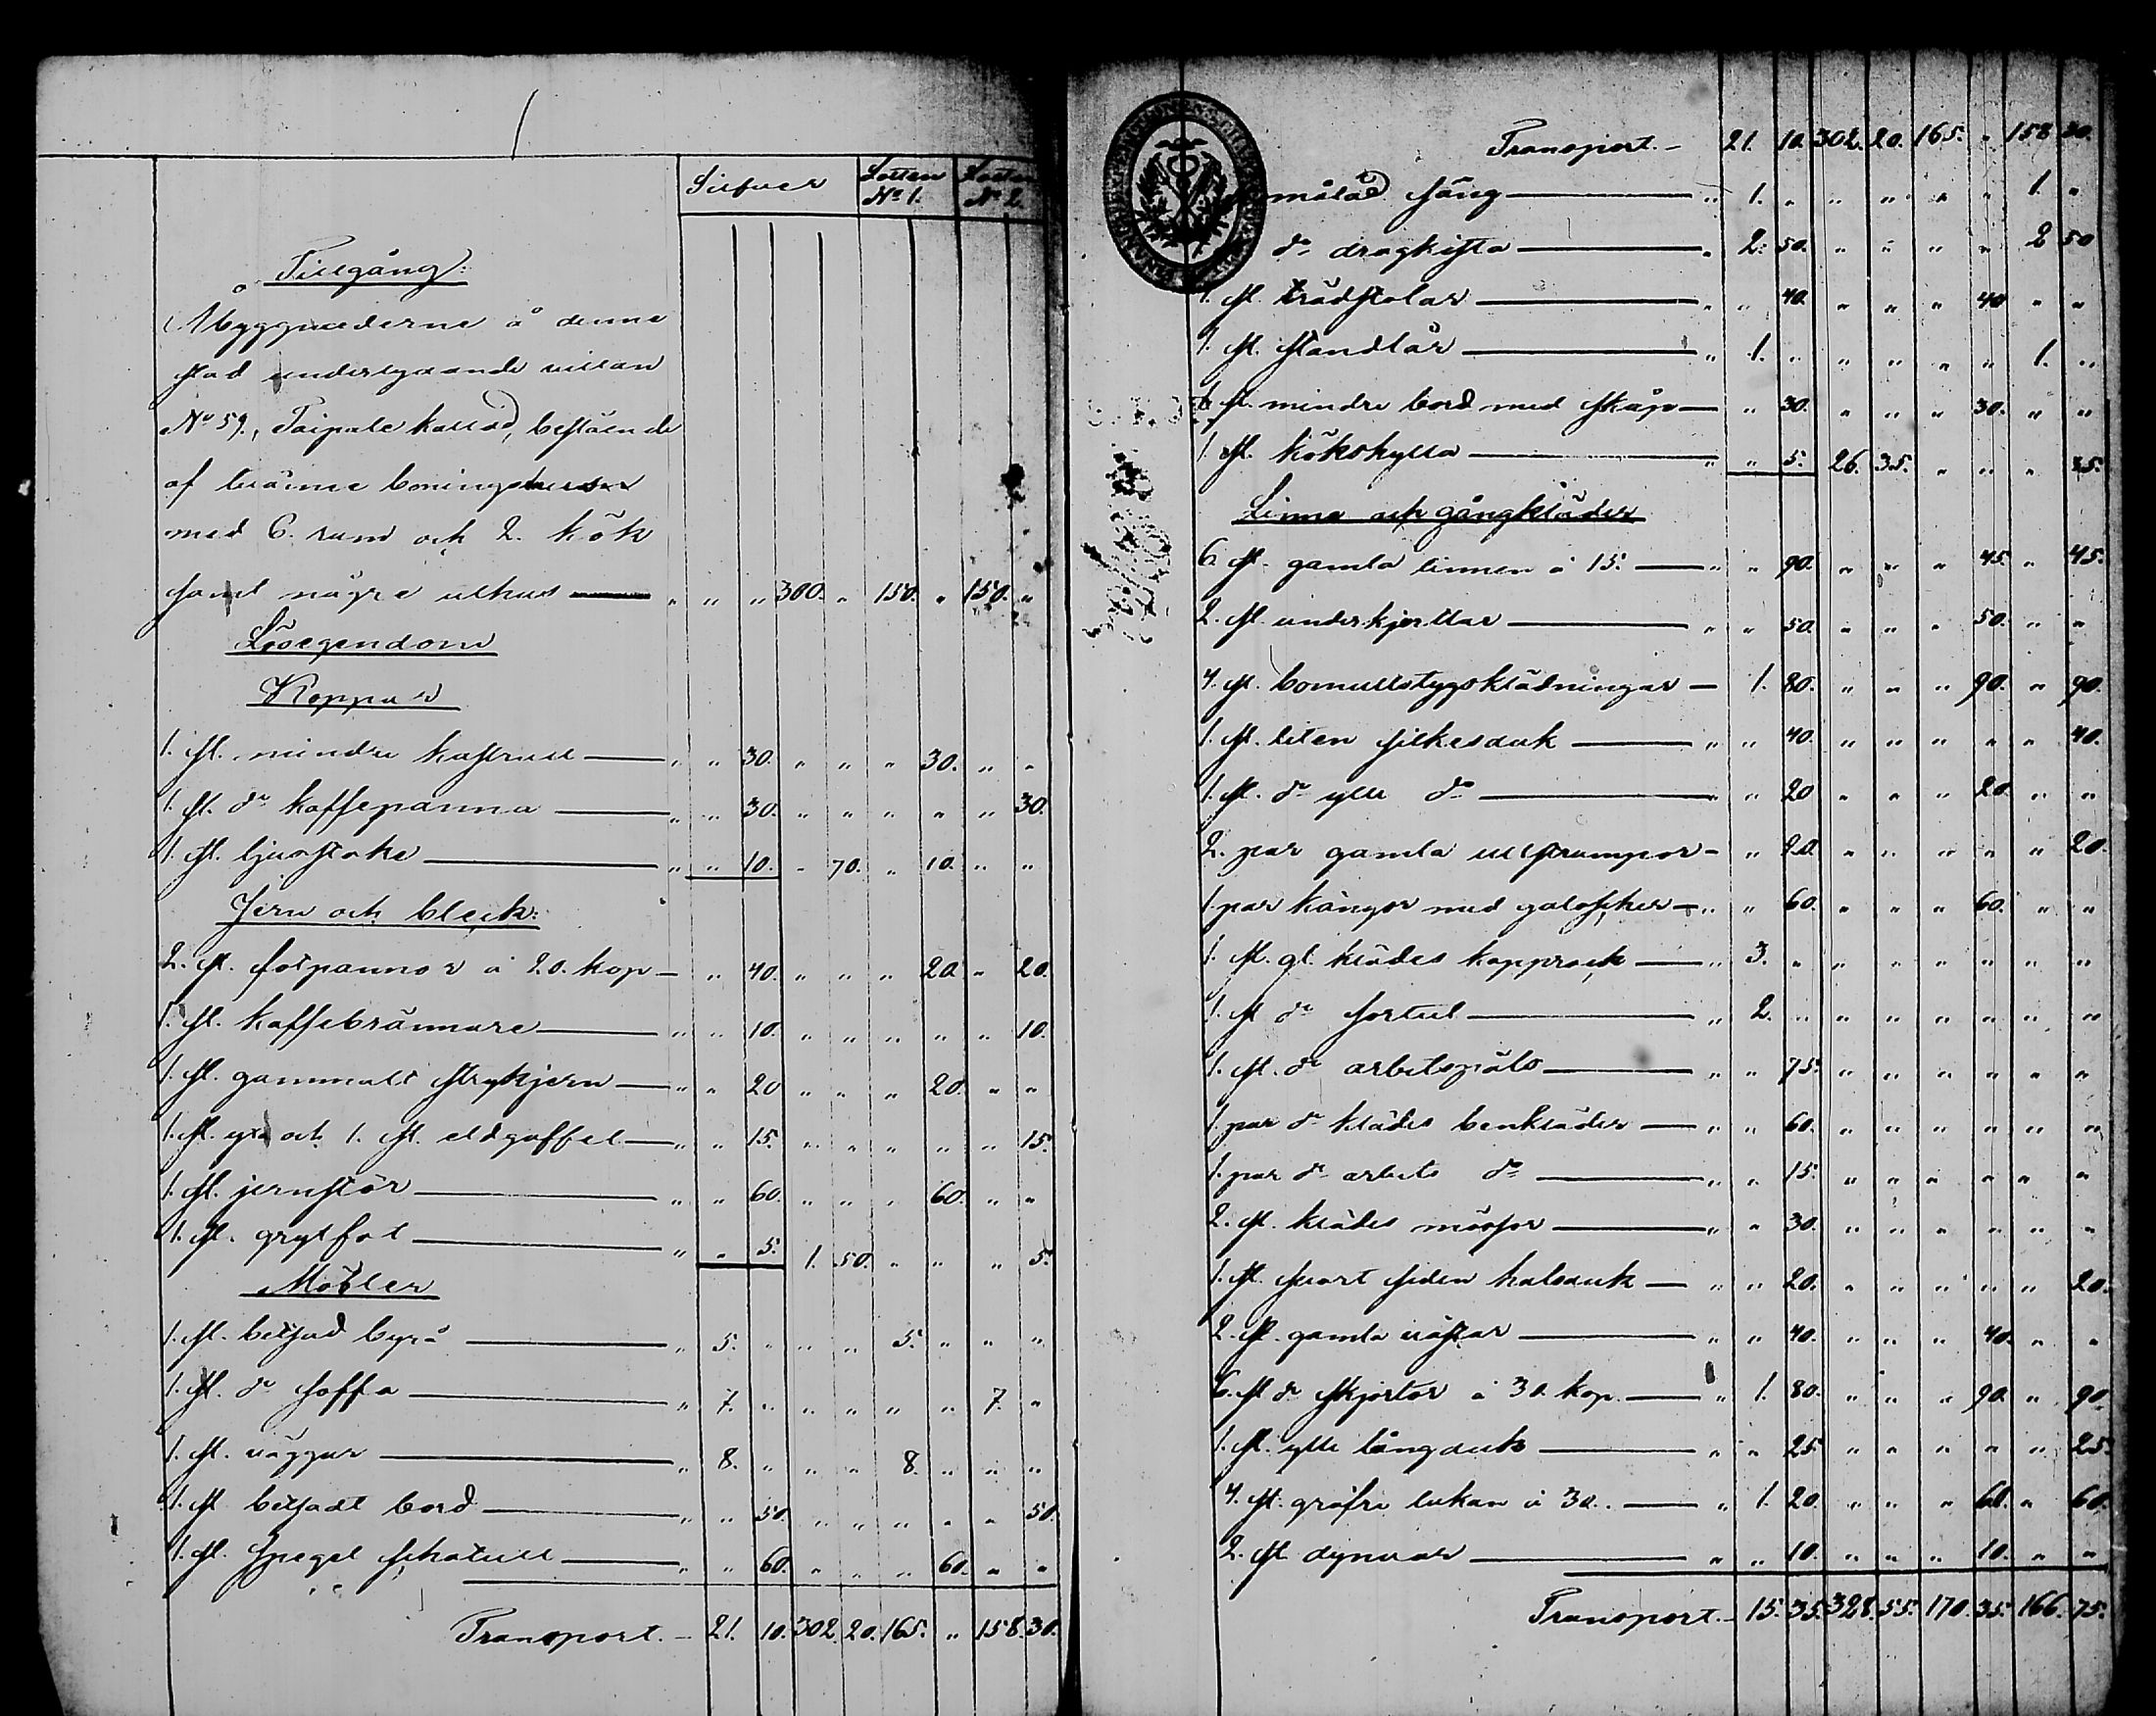 Silfver Lotten Nº 1. Lotten Nº 2.
Tillgång:
Åbyggnaderne å denne
stad underlydande villan
Nº 59., Taipale kallad, bestående
af tvänne boningshus
med 6. rum och 2. kök
samt några uthus — " " " 300. " 150. " 150. "
Lösegendom
Koppar
1. st. mindre kastrull — " " 30. " " " 30. " "
1. st. do kaffepanna — " " 30. " " " " " 30.
1. st. ljusstake — " " 10. " 70. " 10. " "
Jern och bleck:
2. st. fotpannor á 20. kop — " 40. " " " 20. " 20.
1. st. kaffebrännare — " " 10. " " " " " 10.
1. st. gammalt strykjern — " " 20 " " " 20. " "
1. st. yxa och 1. st. eldgaffel — " " 15. " " " " " 15.
1. st. jernstör — " " 60. " " " 60. " "
1. st. grytfot — " " 5. 1. 50. " " " 5.
Möbler
1. st. betsad byrå — " 5. " " " 5. " " "
1. st. do soffa — " 7. " " " " " 7. "
1. st. väggur — " 8. " " " 8. " " "
1. st betsadt bord — " " 50. " " " " " 50.
1. st. Spegel schatull — " " 60. " " " 60. " "
Transport. — 21. 10. 302. 20. 165. " 158. 30.
Transport. — 21. 10. 302. 20. 165. " 158 30.
målad säng — " 1. " " " " " 1. "
do dragkista — " 2. 50. " " " " 2 50
1. st. trädstolar — " " 40. " " " 40 " "
1. st. standtår — " 1. " " " " " 1. "
1. st. mindre bord med skåp — " 30. " " " 30. " "
1. st. kökshylla — " " 5. 26. 35. " " " 5.
Linne och gångkläder
6. st. gamla linnen á 15. — " " 90. " " " 45. " 45.
2. st. underkjortlar — " " 50. " " " 50. " "
4. st. bomullstygsklädningar — 1. 80. " " " 90. " 90.
1. st. liten silkesduk — " " 40. " " " " " 40.
1. st. do ylle do — " " 20 " " " 20. " "
2. par gamla ullstrumpor — " 20 " " " " " 20.
1 par kängor med galoscher — " " 60. " " " 60. " "
1. st. gl. klädes kapprock — " 3. " " " " " " "
1. st do sortut — " 2. " " " " " " "
1. st. do arbetspäls — " " 75. " " " " " "
1. par do klädes benkläder — " " 60. " " " " " "
1. par do arbets do — " " 15. " " " " " "
2. st. klädes mössor — " " 30. " " " " " "
1. st. svart siden halsduk — " " 20. " " " " " 20.
2. st. gamla västar — " " 40. " " " 40. " "
6. st do skjortor á 30. kop. — " 1. 80. " " " 90. " 90
1. st. ylle långduk — " " 25. " " " " " 25.
4. st. gräfre lakan á 30. — " 1. 20. " " " 60. " 60.
2. st. dynvar — " " 10. " " " 10. " "
Transport. — 15. 35. 328. 55. 170. 35. 166. 75.